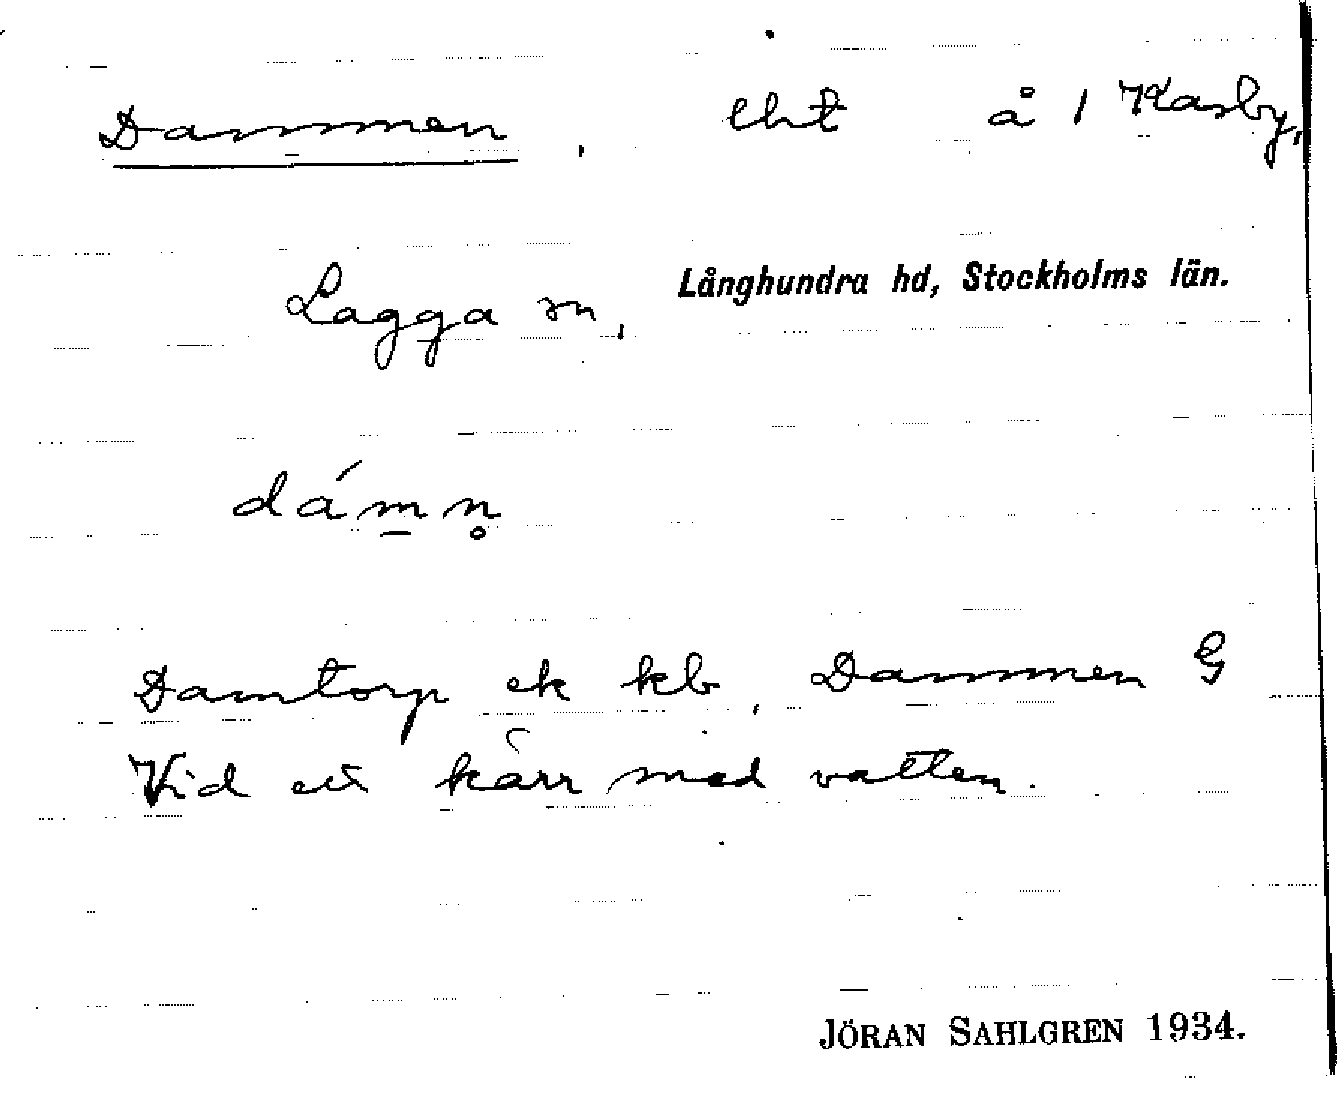 Dammen, lht å 1 Kasby,
Lagga sn, Långhundra hd, Stockholms län.
dám̲n̥
Damtorp ek kb, Dammen G
Vid ett kärr med vatten.
JÖRAN SAHLGREN 1934.